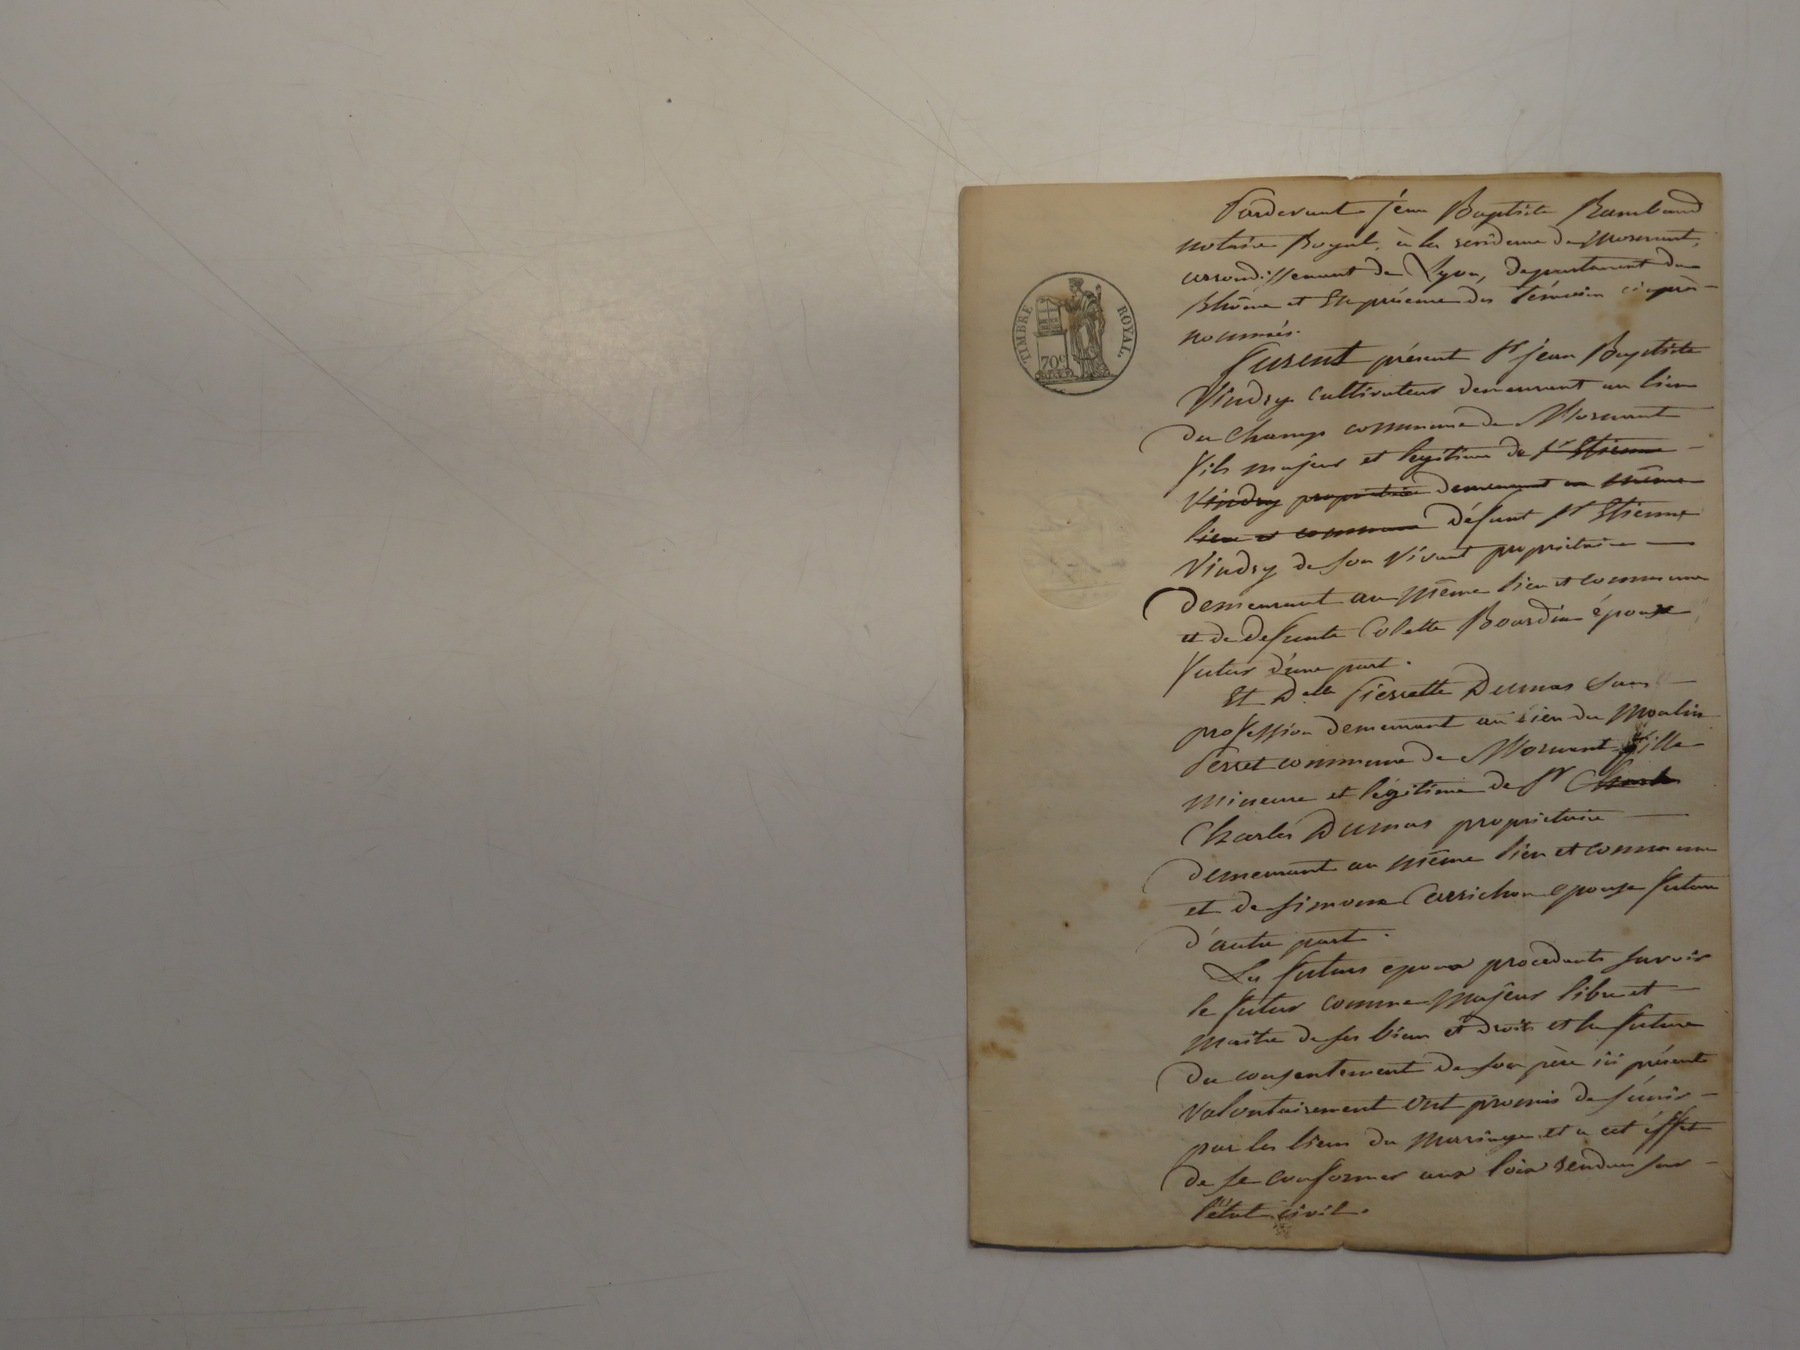 TIMBRE ROYAL
70c
Pardevant jean Baptiste Rambaud
notaire Royal, à la residence de Mornant,
arrondissement de Lyon, departement du
Rhône et En présence des témoins ci après
nommés.
Furent présent Sr jean Baptiste
Vindry cultivateur demeurant au lieu
du champ commune de Mornant
fils majeur et legitime de Sr Etienne
Vindry propriétaire demeurant au même
lieu et commune défunt Sr Etienne
Vindry de son vivant propriétaire
demeurant au même lieu et commune
et de defunte Colette Bourdin époux
futur d'une part.
Et Delle Pierrette Dumas sans
profession demeurant au lieu du Moulin
Perret commune de Mornant fille
mineure et légitime de Sr Charle
Charles Dumas propriétaire
demeurant au même lieu et commune
et de Simone Carrichon epouse future
d'autre part.
Les futurs epoux procedants savoir
le futur comme majeur libre et
maitre de ses bien et droits et la future
du consentement de son père ici présent
volontairement ont promis de s'unir
par les liens du mariage et a cet éffet
de se conformer aux loix rendues sur
l'état civil.